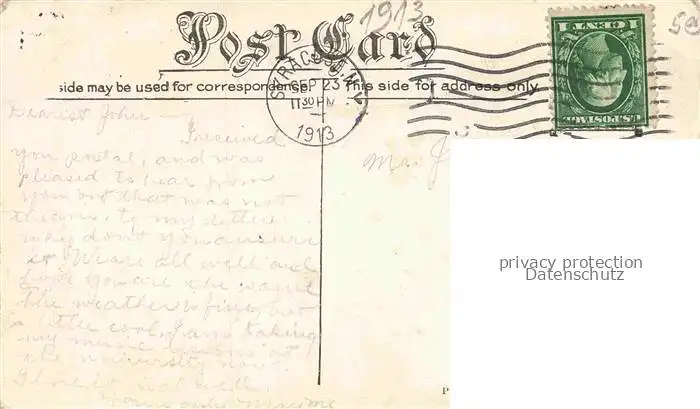 1913
Post Card
side may be used for correspondence. This side for address only.
SYRACUSE, N.Y.
SEP 23
11 30 PM
1913
U.S. POSTAGE
1 CENT 1
Dearest John —
I received
you postal, and was
pleased to hear from
you but that was not
my letter
why don't you answer
it We are all well and
hope you are the same
the weather is fine, but
a little cool. I am taking
my music lessons at
the university now.
well,
Yours only
Mr. J
privacy protection
Datenschutz
P